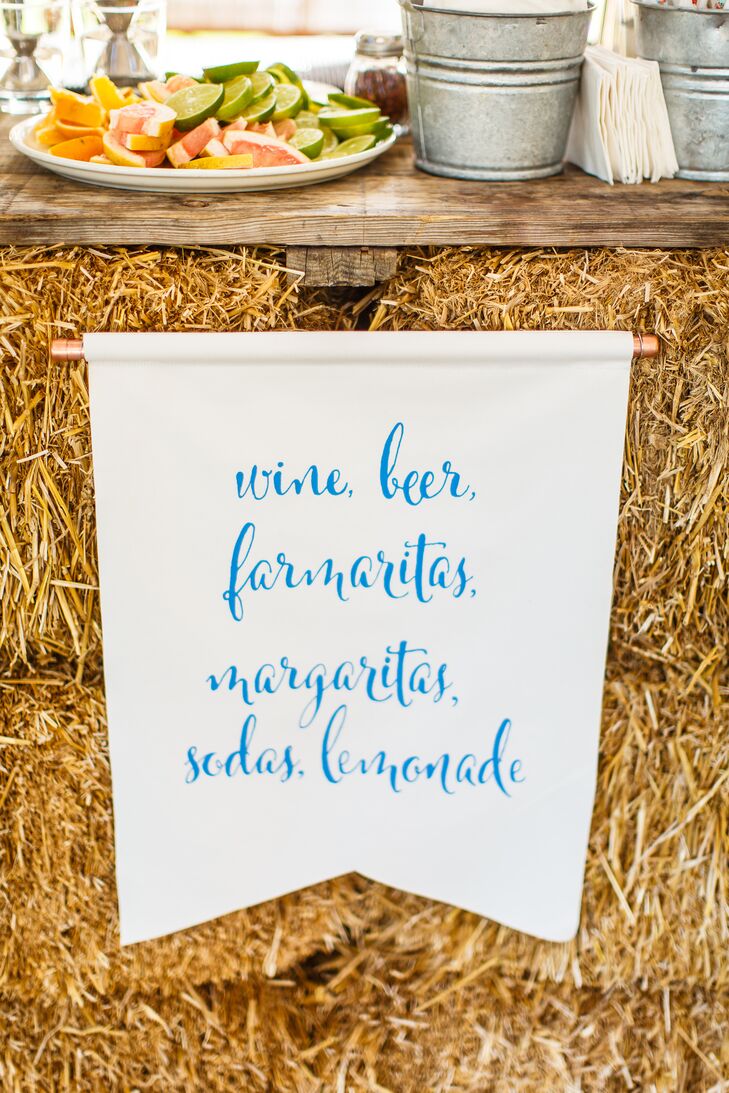 wine, beer,
farmaritas,
margaritas,
sodas, lemonade